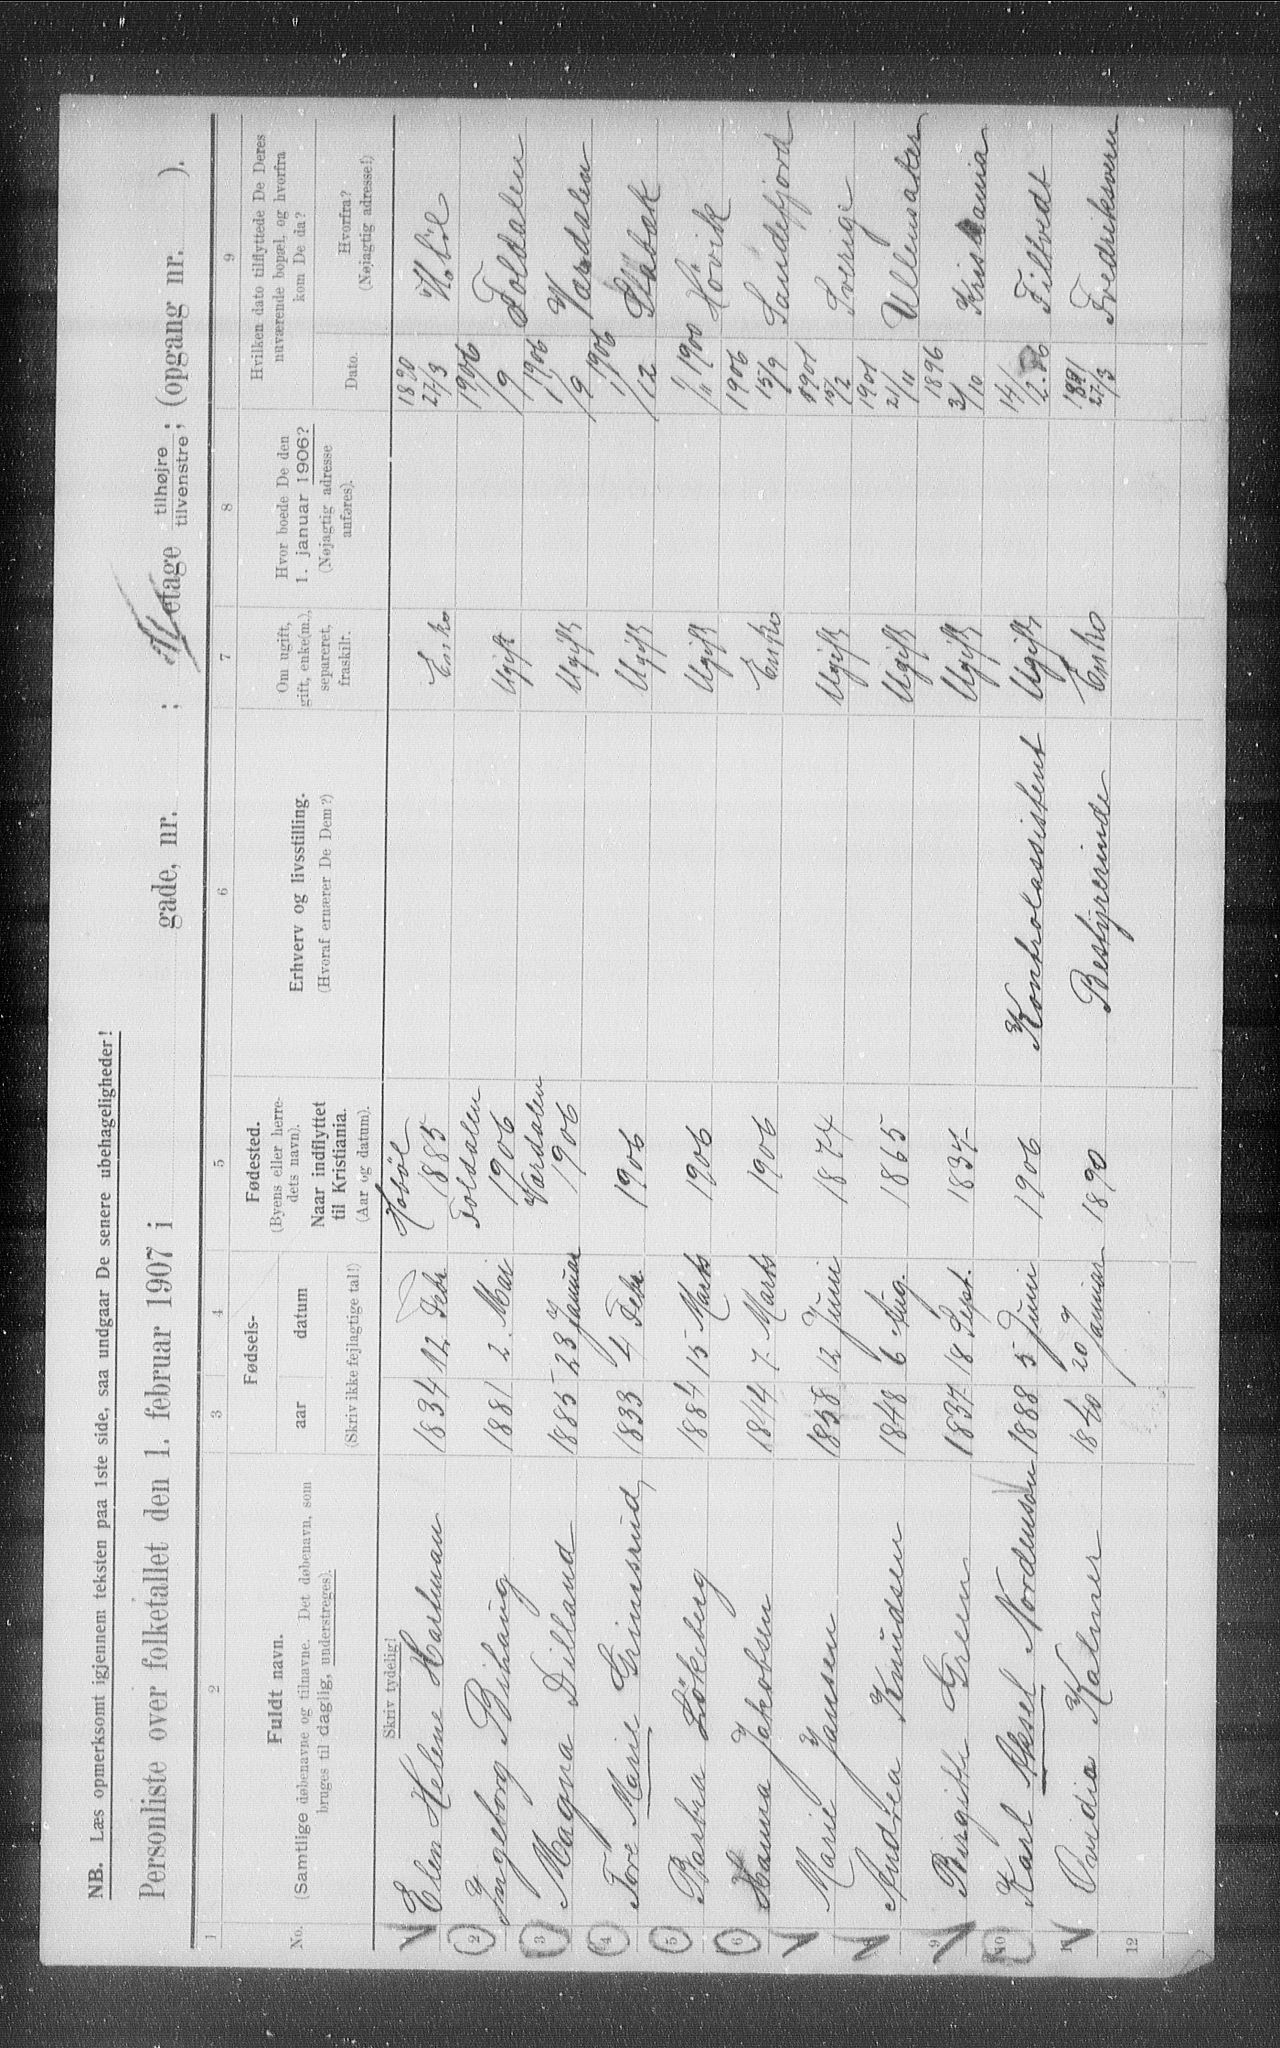 NB. Læs opmerksomt igjennem teksten paa 1ste side, saa undgaar De senere ubehageligheder!
Personliste over folketallet den 1. februar 1907 i gade, nr. ; etage tilhøjre tilvenstre; (opgang nr. ).
1 2 3 4 5 6 7 8 9
No.
Fuldt navn.
(Samtlige døbenavne og tilnavne. Det døbenavn, som
bruges til daglig, understreges).
Skriv tydelig!
Fødsels-
aar datum
(Skriv ikke fejlagtige tal!)
Fødested.
(Byens eller herre-
dets navn).
Naar indflyttet
til Kristiania.
(Aar og datum).
Erhverv og livsstilling.
(Hvoraf ernærer De Dem?)
Om ugift,
gift, enke(m.),
separeret,
fraskilt.
Hvor boede De den
1. januar 1906?
(Nøjagtig adresse
anføres).
Hvilken dato tilflyttede De Deres
nuværende bopæl, og hvorfra
kom De da?
Dato.
Hvorfra?
(Nøjagtig adresse!)
Elen Helene Hartman 1834 12 Febr Hobøl 1885 Enke 1890 27/3 Hobøl
2 Ingeborg Bihaug 1881 2. Mai Foldalen 1906 Ugift 1906 1/9 Foldalen
3 Magna Dilland 1885 23 Januar Værdalen 1906 Ugift 1906 1/9 Værdalen
4 Tore Marie Grimsrud 1833 4 Febr. 1906 Ugift 1906 1/12 Stabæk
5 Barbra Lökeberg 1884 15 Marts 1906 Ugift 1/11 1900 Hövik
6 Hanna Jakobsen 1844 7. Marts 1906 Enke 1906 15/9 Sandefjord
Marie Jansen 1858 12 Juni 1874 Ugift 1901 15/2 Sverige
Andrea Knudsen 1848 6 Aug. 1865 Ugift 1901 21/11 Ullensaker
9 Birgitte Green 1837 18 Sept. 1837 Ugift 1896 3/10 Kristiania
10 Karl Aksel Nordenson 1888 5 Juni 1906 Kontrolassistent Ugift 14/12.06 Filtvedt
11 Ovidia Kalmer 1840 20 Januar 1890 Bestyrerinde Enke 1891 27/3 Fredriksværn
12